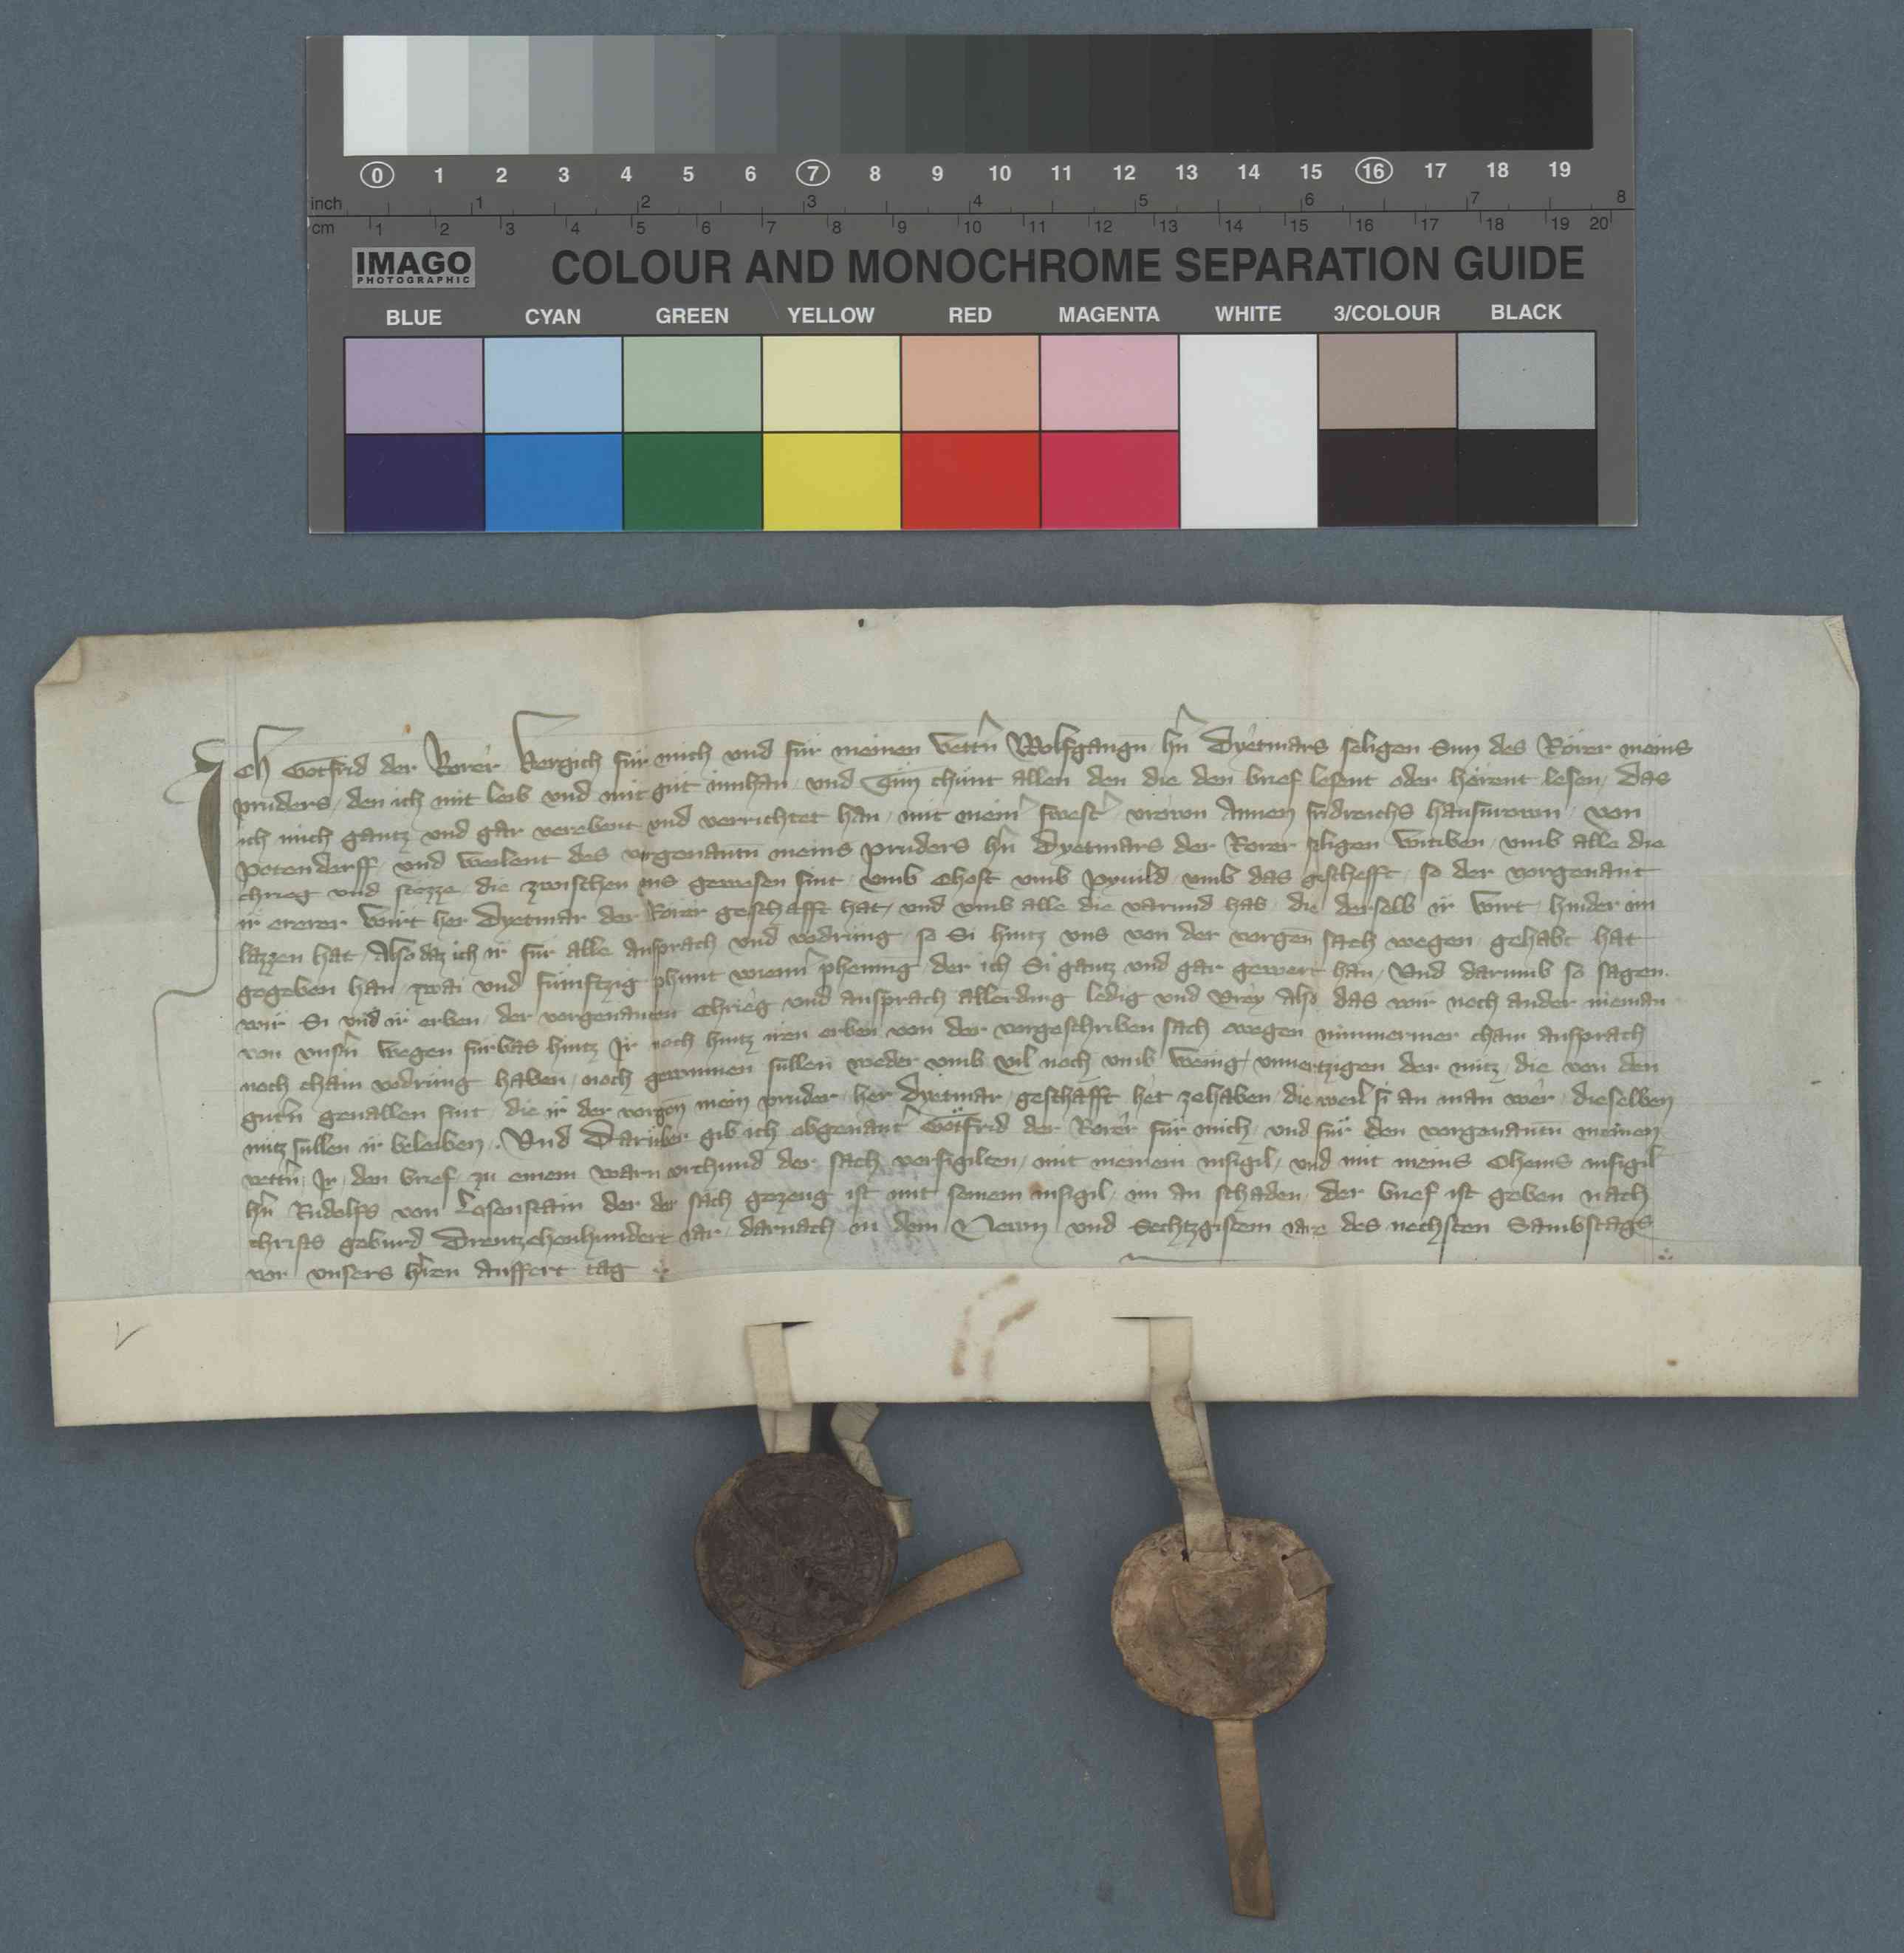 0 1 2 3 4 5 6 7 8 9 10 11 12 13 14 15 16 17 18 19
inch 1 2 3 4 5 6 7 8
cm 1 2 3 4 5 6 7 8 9 10 11 12 13 14 15 16 17 18 19 20
IMAGO
PHOTOGRAPHIC
COLOUR AND MONOCHROME SEPARATION GUIDE
BLUE CYAN GREEN YELLOW RED MAGENTA WHITE 3/COLOUR BLACK
Ich Gotfrid der Rorer vergich für mich vnd für meinen vettn̄ Wolfgangn hn̄ Dyetmars seligen Sun des Rorer meins
pruders, den ich mit leib vnd mit gut innhan, vnd Tun chunt allen den die den brief lesent oder hörent lesen, das
ich mich gantz vnd gar verebent vnd verrichtet han, mit mein̄ swest̄ vrown Annen fridreichs hausurown, von
Potendorff, vnd weilent des vorgenantn̄ meins pruders hn̄ Dyetmars der Rorer seligen witiben, vmb alle die
chrieg vnd stözze, die zwischen vns gewesen sint, vmb Chost vmb pymild, vmb das geschefft, so der vorgenant
ir ererer wirt her Dyetmar der Rorer geschafft hat, vnd vmb alle die varund hab, die derselb ir wirt, hinder im
lazzen hat, Also daz ich ir für alle ansprach vnd vodrung, so Si hintz vns von der vorgen̄ sach wegen, gehabt hat
gegeben han, zwai vnd fümftzig phunt wienn̄ phening, der ich Si gantz vnd gar gewert han, Vnd darumb so sagen
wir Si vnd ir erben, der vorgenanten Chrieg vnd ansprach allerding ledig vnd vrey also das wir noch ander nieman
von vnsn̄ wegen fürbas hintz Ir noch hintz iren erben von der vorgeschriben sach wegen nimmermer chain ansprach
noch chain vodrung haben, noch gewinnen sullen weder vmb vil noch vmb wenig, vnuertzigen der nütz, die von den
gutn̄ geuallen sint, die ir der vorgen̄ mein pruder, her Dyetmar, geschafft het zehaben, die weil si an man wer, dieselben
nütz sullen ir beleiben. Vnd Darüber gib ich obgenant Götfrid der Rorer für mich, vnd für den vorgenantn̄ meinen
vettn̄, Ir, den brief, zu einem warn vrchund der sach, versigilten, mit meinem insigil, vnd mit meins Ohems insigil
hn̄ Rudolfs von Losenstain der der sach gezeug ist mit seinem insigil, im an schaden. Der brief ist geben nach
christs geburd Dreutzehenhundert iar, darnach in dem Neun vnd Sechtzgistem iare des nechsten Sambstags
vor vnsers hr̄en Auffert tag